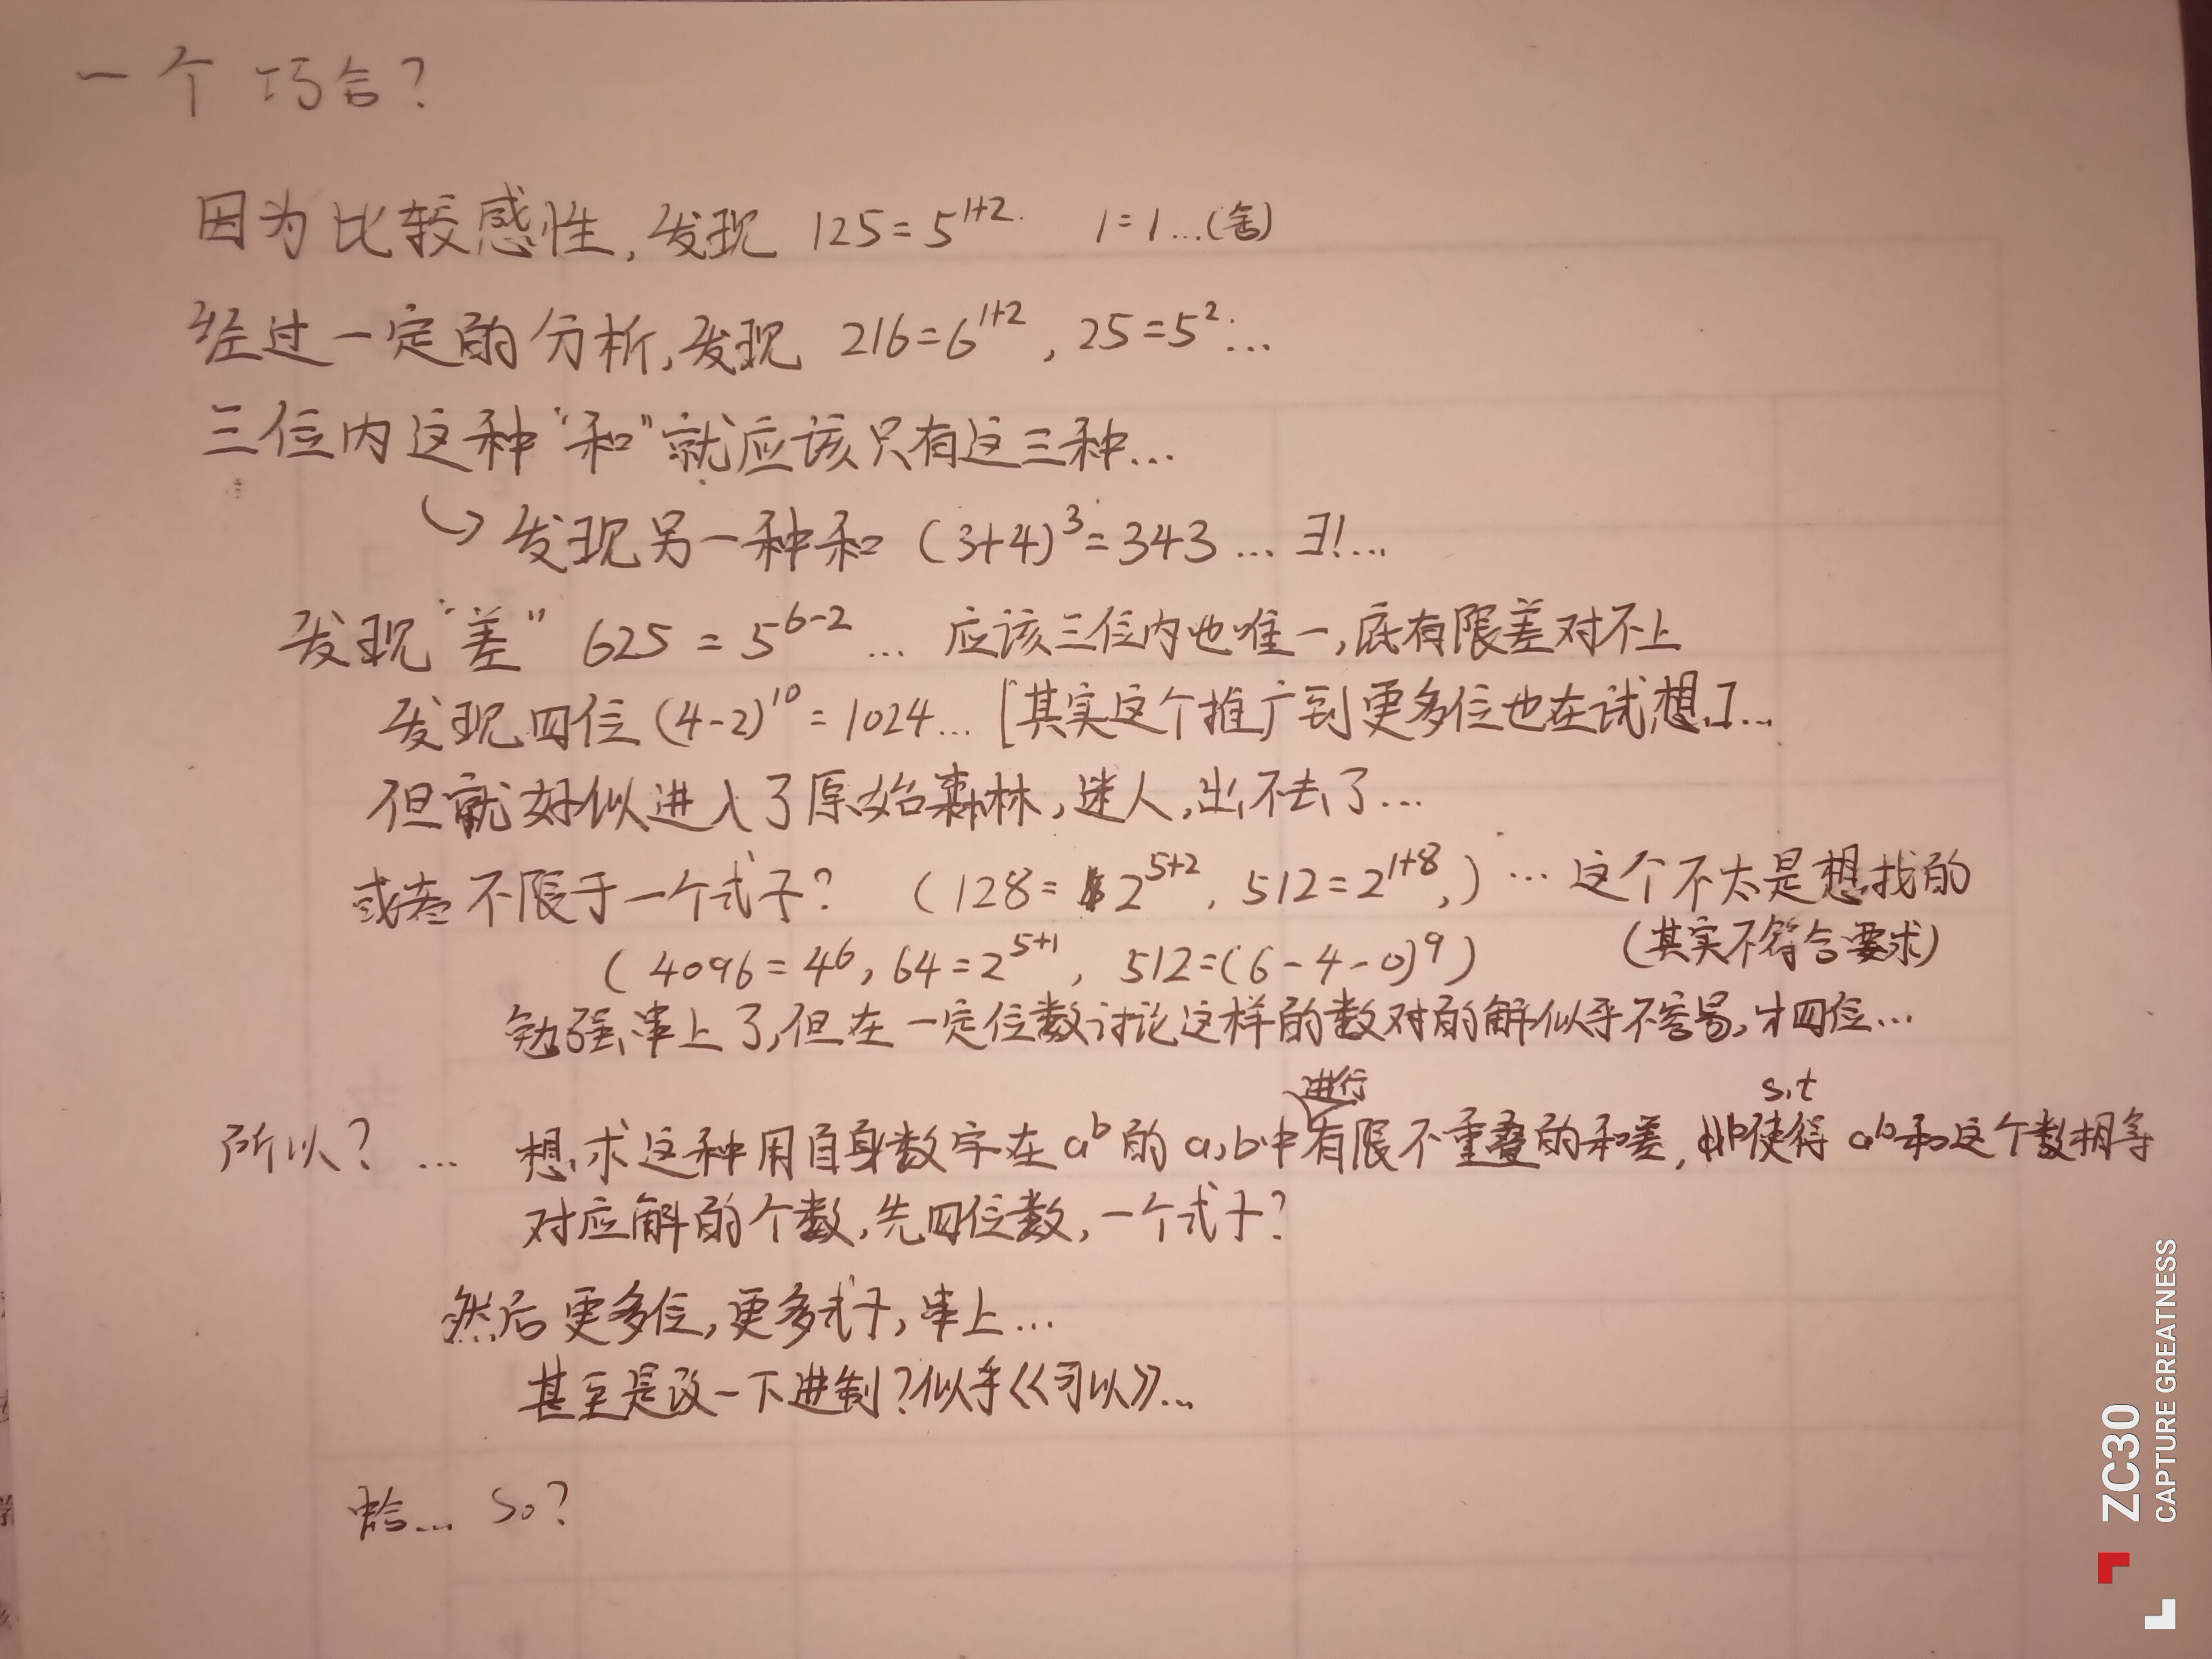 一个 巧合?
因为比较感性,发现 125=5^{1+2}. 1=1...(舍)
经过一定的分析,发现 216=6^{1+2}, 25=5^2...
三位内这种“和”就应该只有这三种...
↪ 发现另一种和 (3+4)^3=343 ... ∃!...
发现“差” 625=5^{6-2} ... 应该三位内也唯一,底有限差对不上
发现四位(4-2)^{10}=1024... [其实这个推广到更多位也在试想]...
但就好似进入了原始森林,迷人,出不去了...
或者不限于一个式子? (128=2^{5+2}, 512=2^{1+8},) ... 这个不太是想找的
(4096=4^6, 64=2^{5+1}, 512=(6-4-0)^9) (其实不符合要求)
勉强串上了,但在一定位数讨论这样的数对的解似乎不容易,才四位...
所以? ... 想求这种用自身数字在a^b的a,b中进行有限不重叠的和差, s.t 使得 a^b和这个数相等
对应解的个数,先四位数,一个式子?
然后更多位,更多式子,串上...
甚至是改一下进制?似乎《《可以》...
... So?
ZC30
CAPTURE GREATNESS